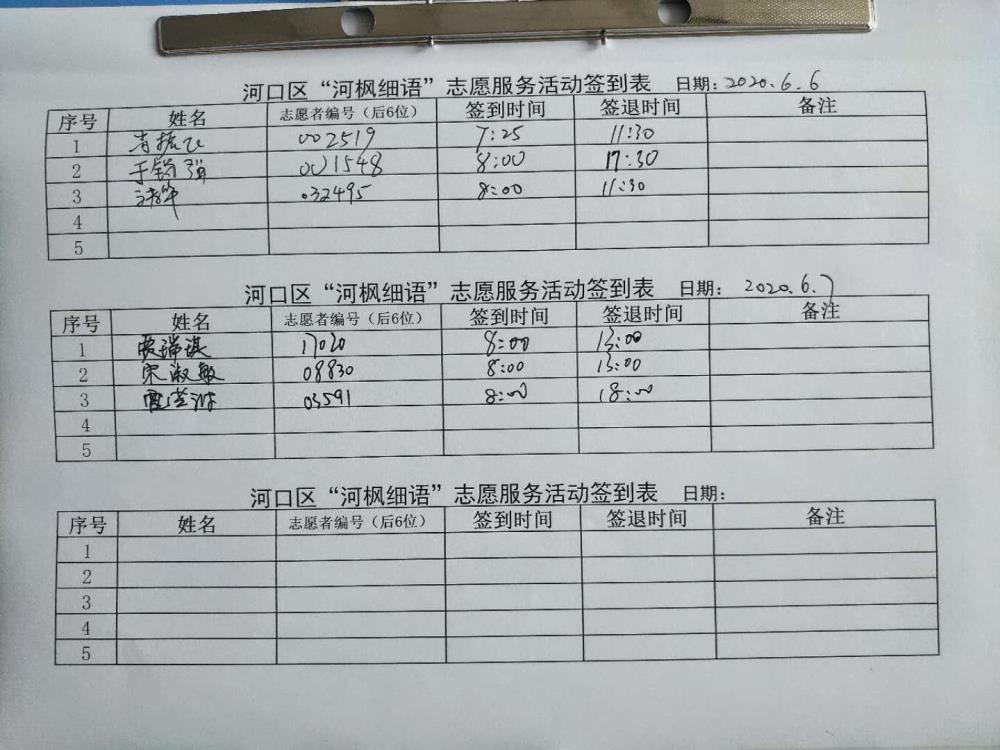 河口区“河枫细语”志愿服务活动签到表 日期：2020.6.6
序号 姓名 志愿者编号（后6位） 签到时间 签退时间 备注
1 002519 7:25 11:30
2 001548 8:00 17:30
3 032495 8:00 11:30
4
5
河口区“河枫细语”志愿服务活动签到表 日期： 2020.6.7
序号 姓名 志愿者编号（后6位） 签到时间 签退时间 备注
1 17020 8:00 13:00
2 宋淑敏 08830 8:00 13:00
3 03591 8:00 18:00
4
5
河口区“河枫细语”志愿服务活动签到表 日期：
序号 姓名 志愿者编号（后6位） 签到时间 签退时间 备注
1
2
3
4
5